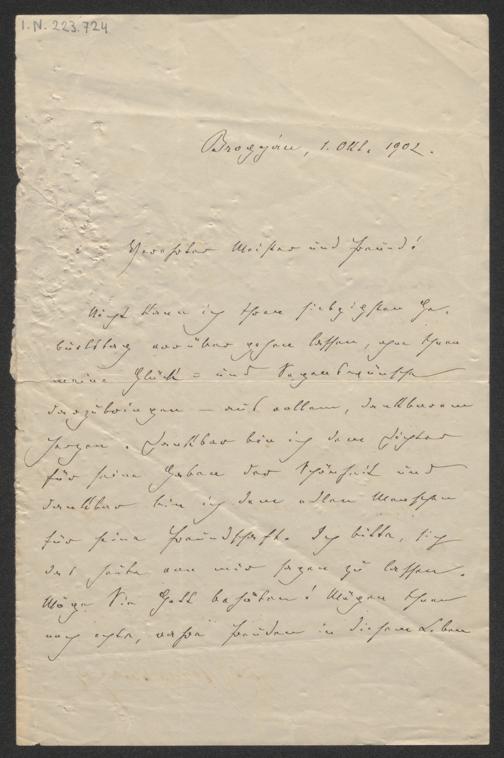 I. N. 223.724
Brogyán, 1. Okt. 1902.
Verehrter Meister und Freund!
Nicht kann ich Ihren siebzigsten Ge-
burtstag vorüber gehen lassen, ohne Ihnen
meine Glück= und Segenswünsche
darzubringen – aus vollem, dankbarem
Herzen. Dankbar bin ich dem Dichter
für seine Gaben der Schönheit und
dankbar bin ich dem edlen Menschen
für seine Freundschaft. Ich bitte, sich
das heute von mir sagen zu lassen.
Möge Sie Gott behüten! Mögen Ihnen
noch echte, wahre Freuden in diesem Leben